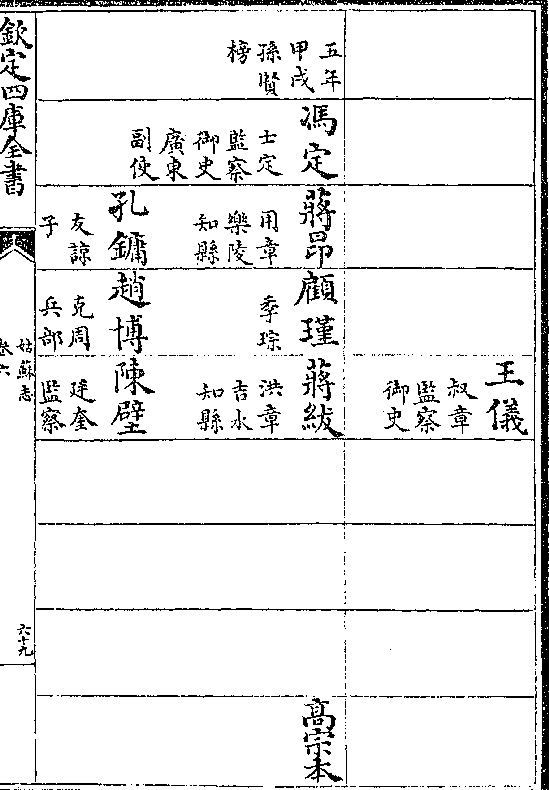 王儀
叔章
監察
御史
五年
甲戌
孫賢
榜
馮定
士定
監察
御史
廣東
副使
蔣昂
用章
樂陵
知縣
孔鏞
友諒
子
顧瑾
季琮
趙博
克周
兵部
蔣紱
洪章
吉水
知縣
陳璧
廷奎
監察
高宗本
欽定四庫全書
姑蘇志
卷六
六十九